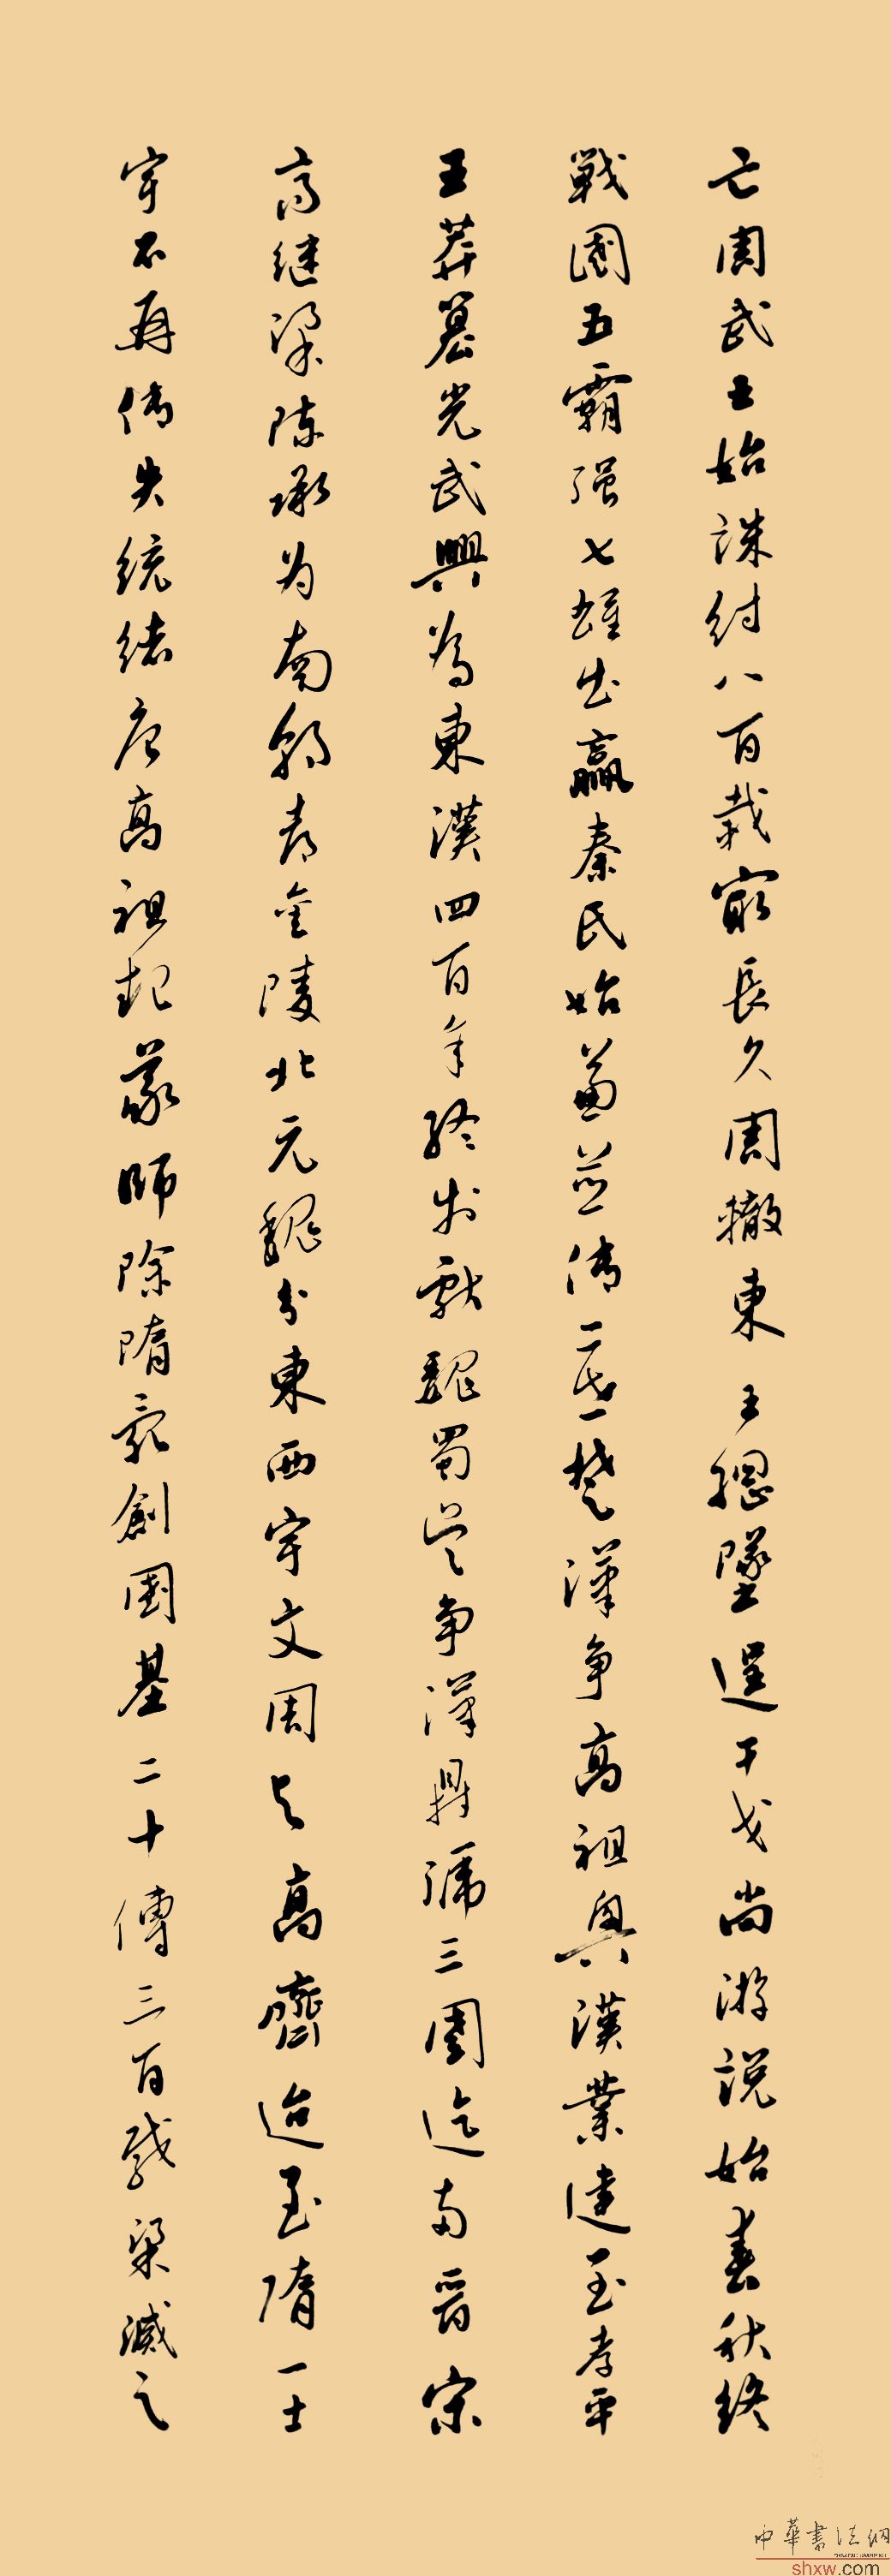 亡周武王始誅紂八百載最長久周轍東王綱墜逞干戈尚游説始春秋終
戰國五霸强七雄出嬴秦氏始兼並傳二世楚漢争高祖興漢業建至孝平
王莽篡光武興為東漢四百年終於獻魏蜀吴争漢鼎號三國迄两晉宋
高继梁陈承为南朝都金陵北元魏分東西宇文周与高齊迨至隋一土
宇不再傳失統緒唐高祖起義師除隋亂創國基二十傳三百载梁滅之
中華書法網
shxw.com